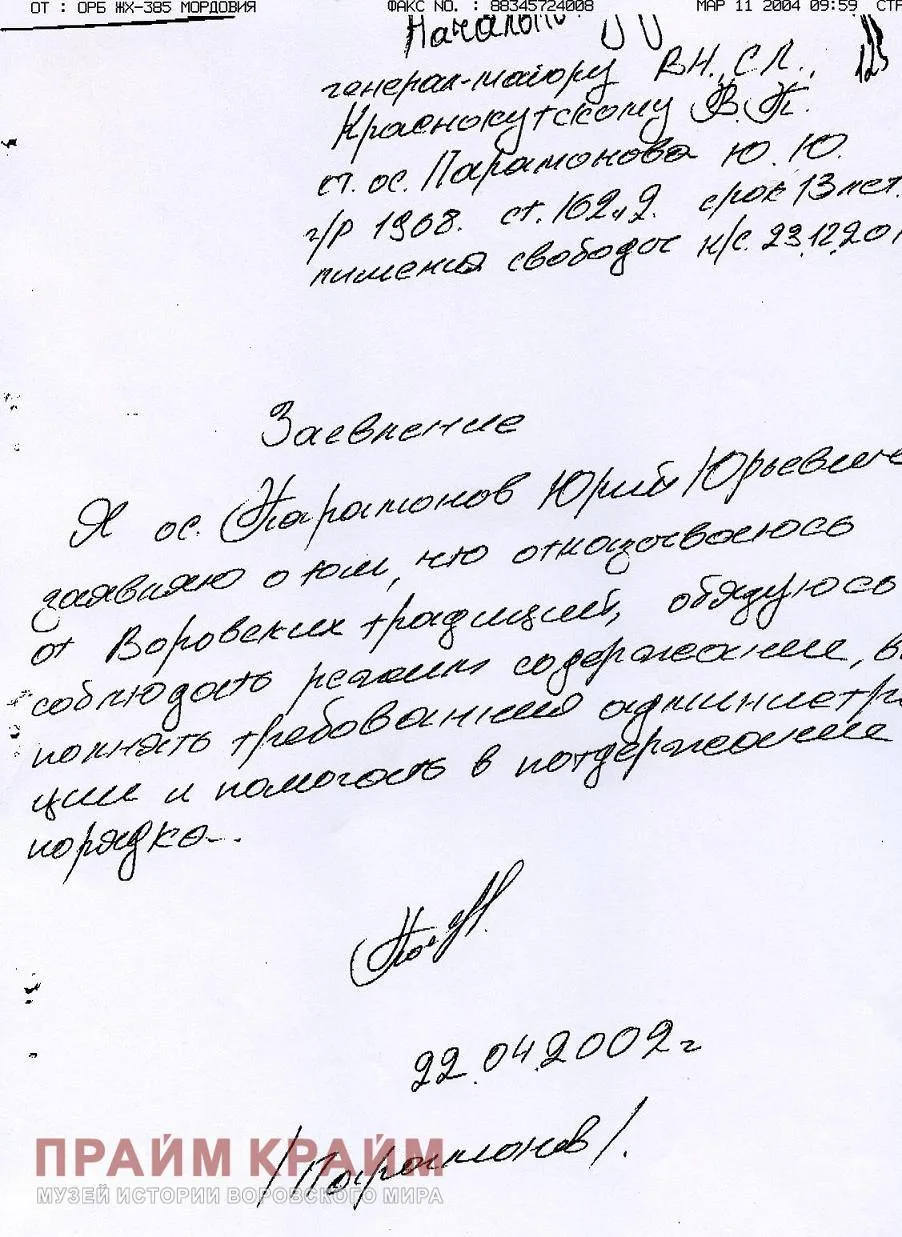 ОТ : ОРБ ЖХ-385 МОРДОВИЯ ФАКС NO. : 88345724008 МАР 11 2004 09:59 СТР
123
генерал-майору ВН., СЛ.,
Краснокутскому В.П.
от. ос. Парамонова Ю. Ю.
г/р 1968. ст. 162ч2. срок 13 лет.
лишения свободы н/с. 23.12.20
Заевление
Я ос. Парамонов Юрий Юрьевич
заявляю о том, что отказываюсь
от Воровских традиций, обязуюсь
соблюдать режим содержание, вы
полнять требованния администра
ции и помогать в потдержание
порядка.
22.04.2002г
/Парамонов/.
ПРАЙМ КРАЙМ
МУЗЕЙ ИСТОРИИ ВОРОВСКОГО МИРА